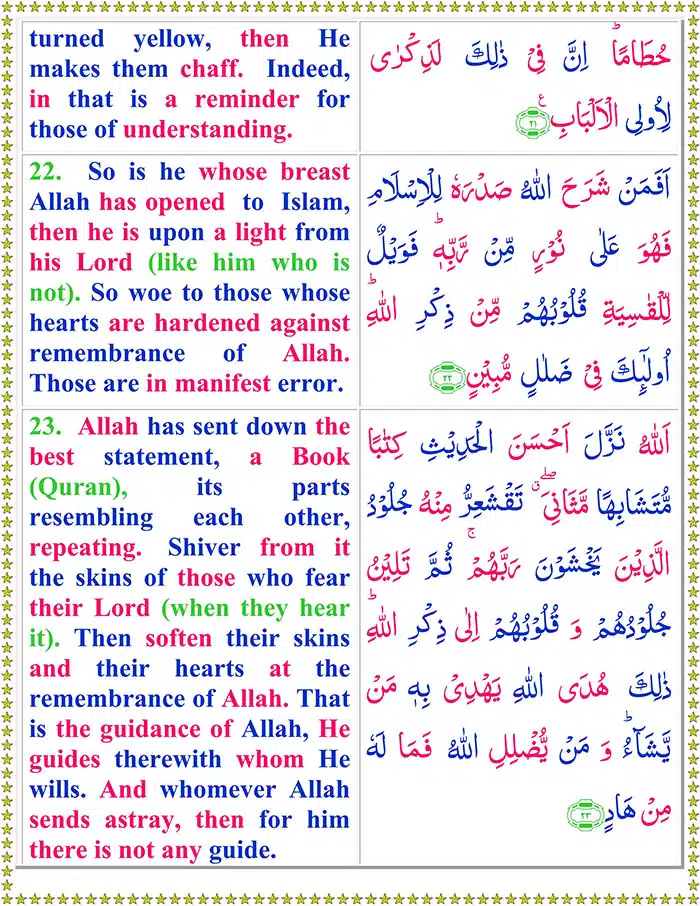 turned yellow, then He
makes them chaff. Indeed,
in that is a reminder for
those of understanding.
حُطَامًا ؕ اِنَّ فِيْ ذٰلِكَ لَذِكْرٰى
لِاُولِى الْاَلْبَابِ ۧ ٢١
22. So is he whose breast
Allah has opened to Islam,
then he is upon a light from
his Lord (like him who is
not). So woe to those whose
hearts are hardened against
remembrance of Allah.
Those are in manifest error.
اَفَمَنْ شَرَحَ اللّٰهُ صَدْرَهٗ لِلْاِسْلَامِ
فَهُوَ عَلٰى نُوْرٍ مِّنْ رَّبِّهٖ ؕ فَوَيْلٌ
لِّلْقٰسِيَةِ قُلُوْبُهُمْ مِّنْ ذِكْرِ اللّٰهِ ؕ
اُولٰٓئِكَ فِيْ ضَلٰلٍ مُّبِيْنٍ ٢٢
23. Allah has sent down the
best statement, a Book
(Quran), its parts
resembling each other,
repeating. Shiver from it
the skins of those who fear
their Lord (when they hear
it). Then soften their skins
and their hearts at the
remembrance of Allah. That
is the guidance of Allah, He
guides therewith whom He
wills. And whomever Allah
sends astray, then for him
there is not any guide.
اَللّٰهُ نَزَّلَ اَحْسَنَ الْحَدِيْثِ كِتٰبًا
مُّتَشَابِهًا مَّثَانِيَ ۖۗ تَقْشَعِرُّ مِنْهُ جُلُوْدُ
الَّذِيْنَ يَخْشَوْنَ رَبَّهُمْ ۚ ثُمَّ تَلِيْنُ
جُلُوْدُهُمْ وَ قُلُوْبُهُمْ اِلٰى ذِكْرِ اللّٰهِ ؕ
ذٰلِكَ هُدَى اللّٰهِ يَهْدِيْ بِهٖ مَنْ
يَّشَآءُ ؕ وَ مَنْ يُّضْلِلِ اللّٰهُ فَمَا لَهٗ
مِنْ هَادٍ ٢٣